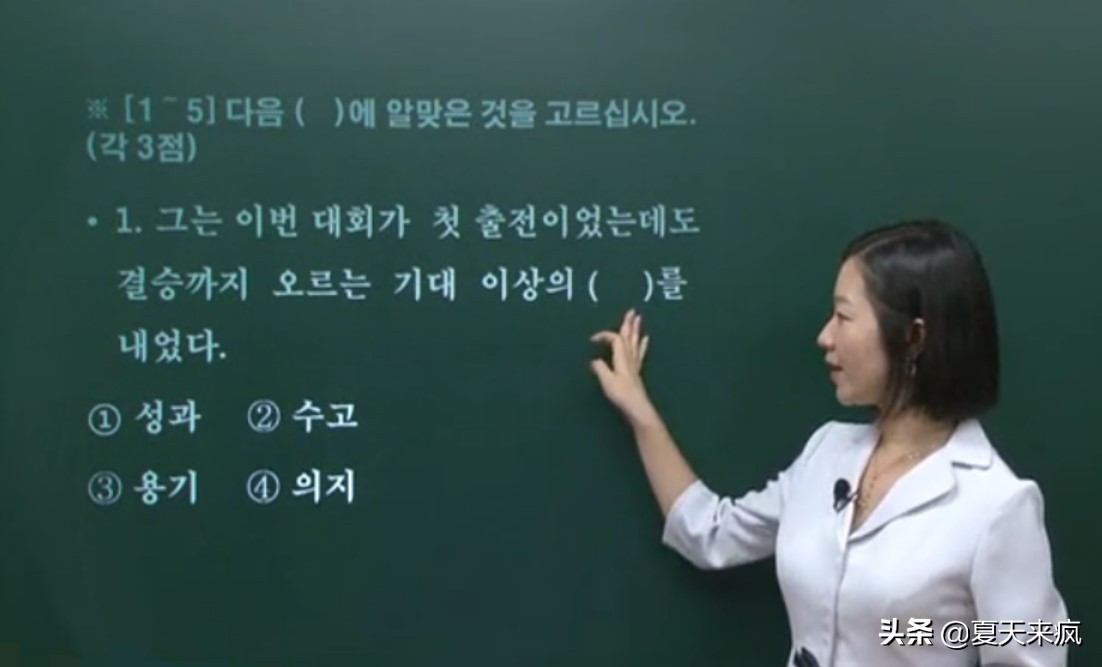 ※ [1~5] 다음 (   )에 알맞은 것을 고르십시오.
(각 3점)
• 1. 그는 이번 대회가 첫 출전이었는데도
결승까지 오르는 기대 이상의 (   )를
내었다.
① 성과 ② 수고
③ 용기 ④ 의지
头条 @夏天来疯